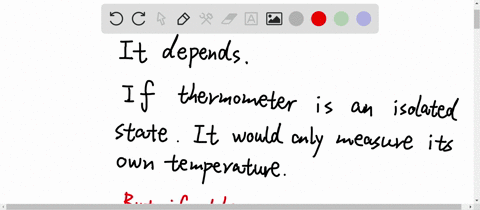 It depends.
If thermometer is an isolated
state. It would only measure its
own temperature.